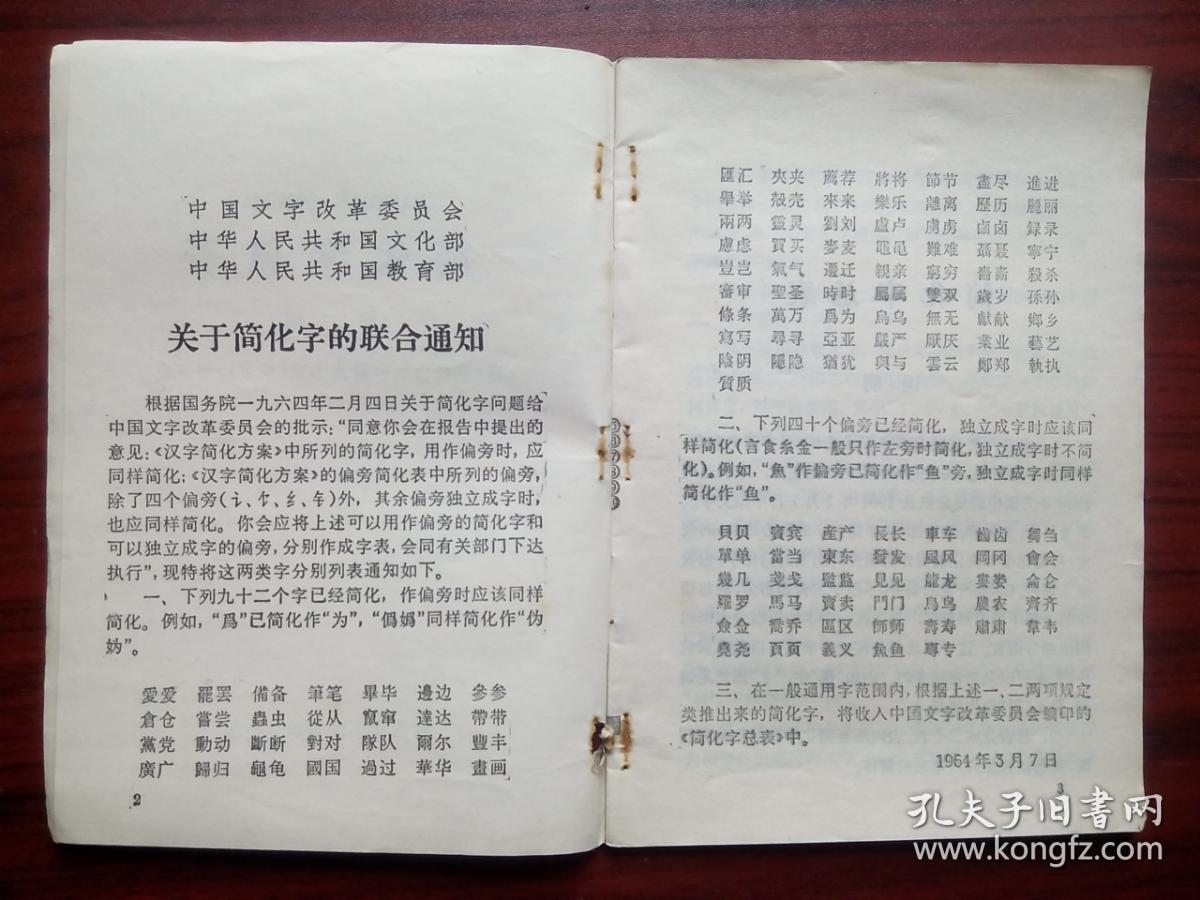 中国文字改革委员会
中华人民共和国文化部
中华人民共和国教育部
关于简化字的联合通知
根据国务院一九六四年二月四日关于简化字问题给
中国文字改革委员会的批示:“同意你会在报告中提出的
意见:《汉字简化方案》中所列的简化字,用作偏旁时,应
同样简化;《汉字简化方案》的偏旁简化表中所列的偏旁,
除了四个偏旁(讠、饣、纟、钅)外,其余偏旁独立成字时,
也应同样简化。你会应将上述可以用作偏旁的简化字和
可以独立成字的偏旁,分别作成字表,会同有关部门下达
执行”,现特将这两类字分别列表通知如下。
一、下列九十二个字已经简化,作偏旁时应该同样
简化。例如,“爲”已简化作“为”,“僞嬀”同样简化作“伪
妫”。
愛爱 罷罢 備备 筆笔 畢毕 邊边 參参
倉仓 嘗尝 蟲虫 從从 竄窜 達达 帶带
黨党 動动 斷断 對对 隊队 爾尔 豐丰
廣广 歸归 龜龟 國国 過过 華华 畫画
2
匯汇 夾夹 薦荐 將将 節节 盡尽 進进
舉举 殼壳 來来 樂乐 離离 歷历 麗丽
兩两 靈灵 劉刘 盧卢 虜虏 鹵卤 録录
慮虑 買买 麥麦 黽黾 難难 聶聂 寧宁
豈岂 氣气 遷迁 親亲 窮穷 嗇啬 殺杀
審审 聖圣 時时 屬属 雙双 歲岁 孫孙
條条 萬万 爲为 烏乌 無无 獻献 鄉乡
寫写 尋寻 亞亚 嚴严 厭厌 業业 藝艺
陰阴 隱隐 猶犹 與与 雲云 鄭郑 執执
質质
二、下列四十个偏旁已经简化,独立成字时应该同
样简化(言食糸金一般只作左旁时简化,独立成字时不简
化)。例如,“魚”作偏旁已简化作“鱼”旁,独立成字时同样
简化作“鱼”。
貝贝 賓宾 産产 長长 車车 齒齿 芻刍
單单 當当 東东 發发 風风 岡冈 會会
幾几 戔戋 監监 見见 龍龙 婁娄 侖仑
羅罗 馬马 賣卖 門门 鳥鸟 農农 齊齐
僉佥 喬乔 區区 師师 壽寿 肅肃 韋韦
堯尧 頁页 義义 魚鱼 專专
三、在一般通用字范围内,根据上述一、二两项规定
类推出来的简化字,将收入中国文字改革委员会编印的
《简化字总表》中。
1964年3月7日
3
孔夫子旧书网
www.kongfz.com